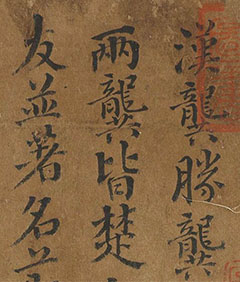 漢龔勝龔
兩龔皆楚
友並著名